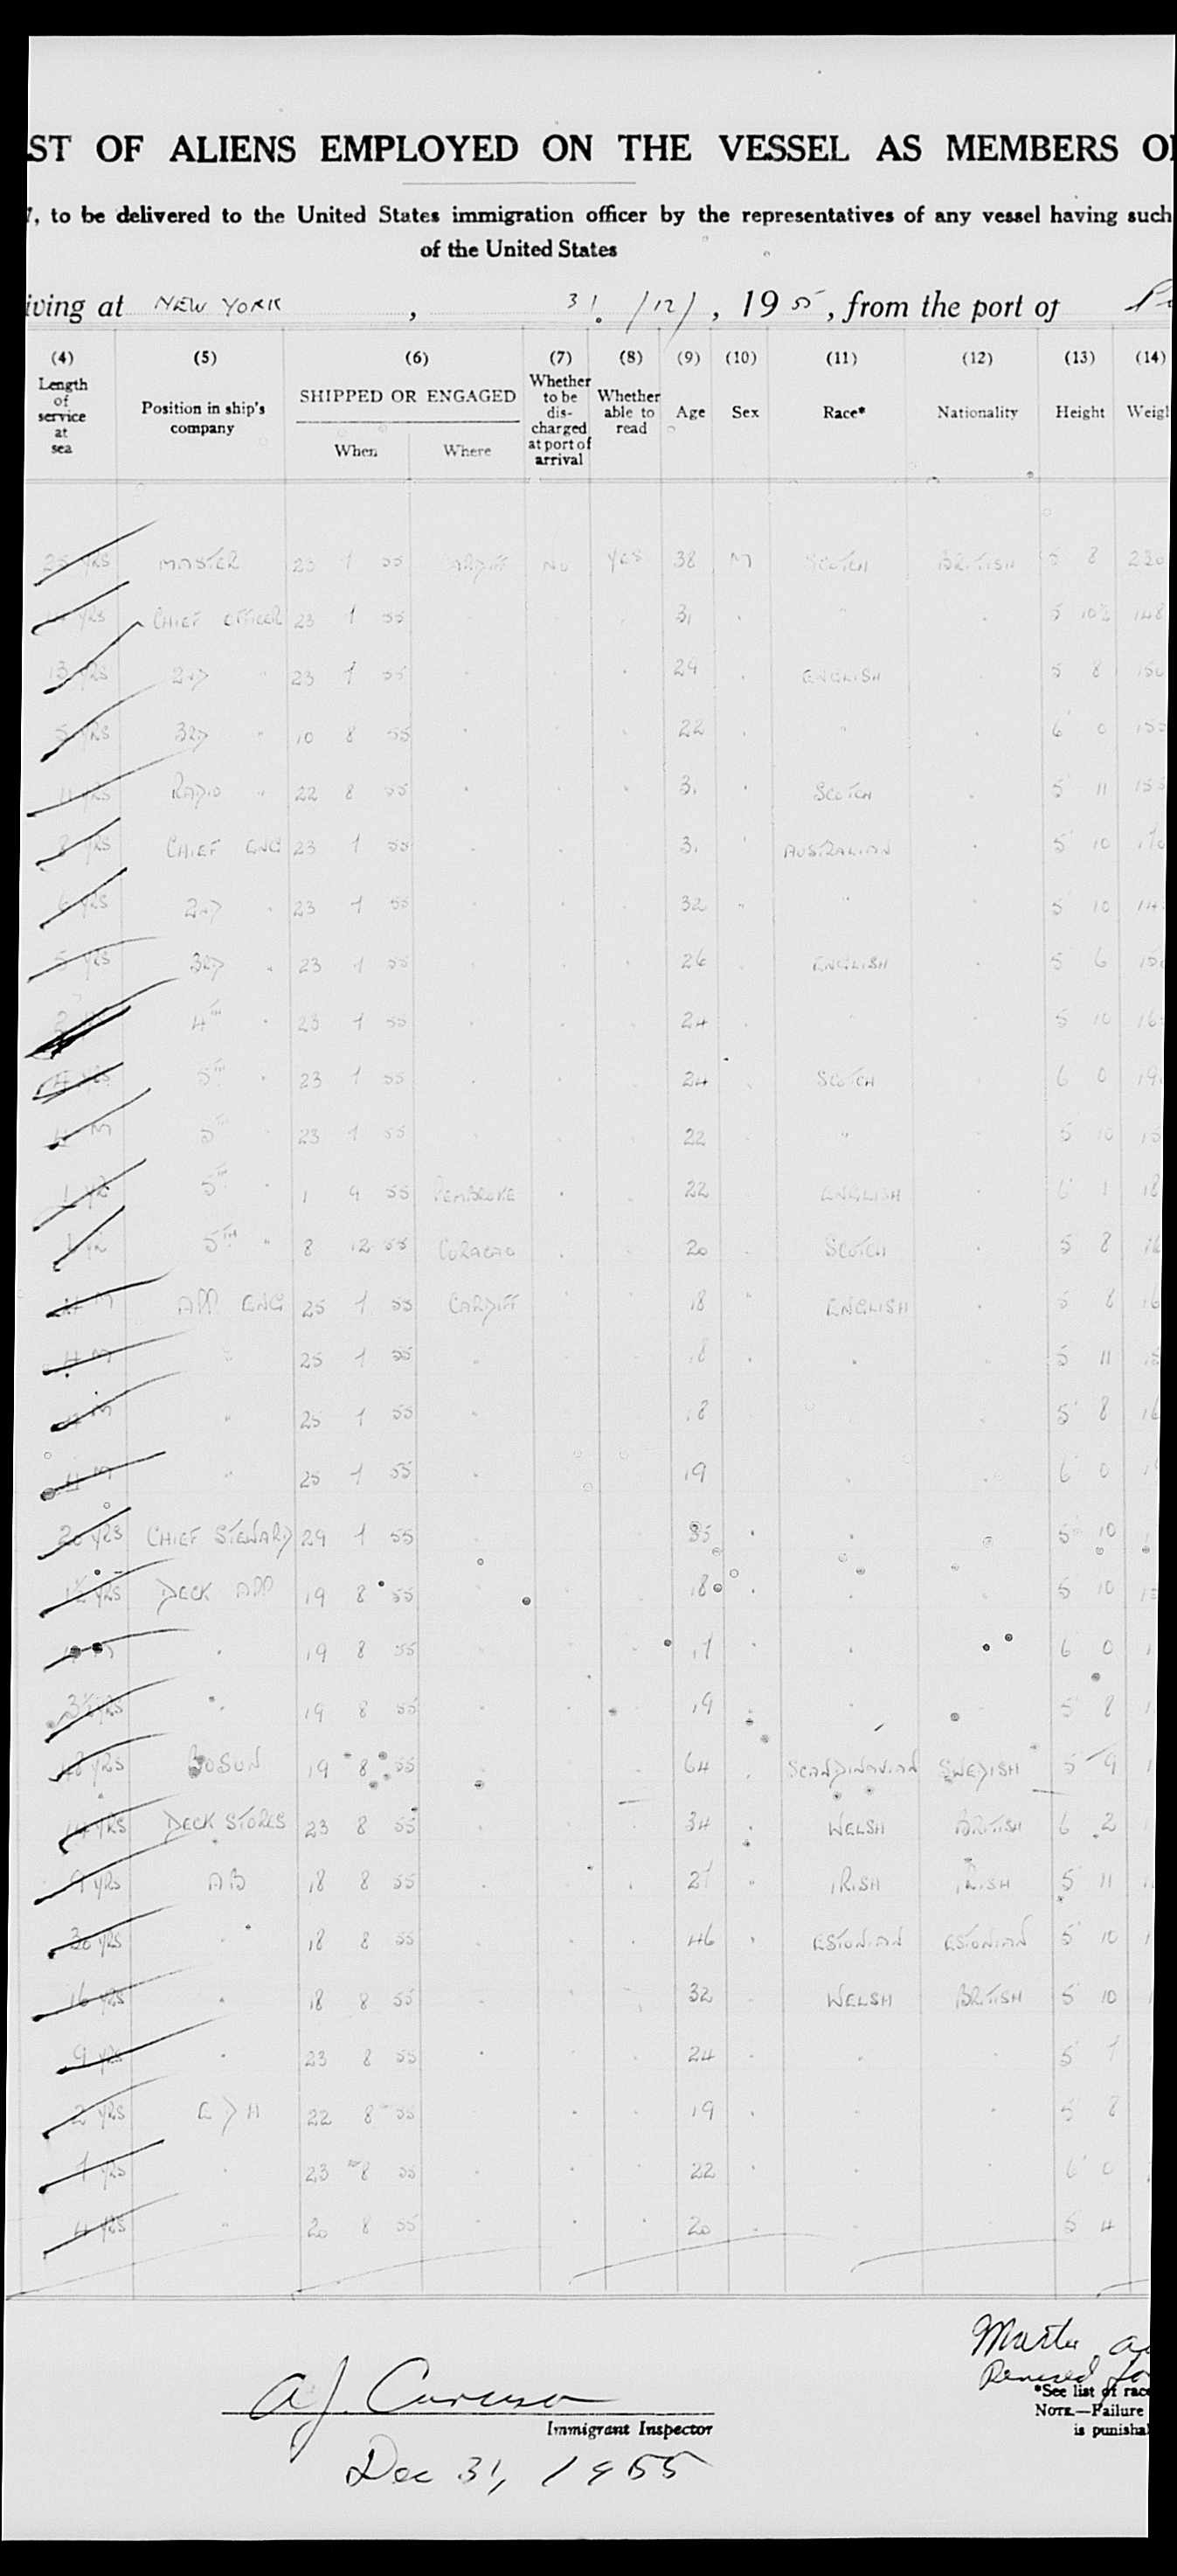 ST OF ALIENS EMPLOYED ON THE VESSEL AS MEMBERS O
, to be delivered to the United States immigration officer by the representatives of any vessel having such
of the United States
iving at NEW YORK , 31. /12/ , 1955, from the port of
(4) (5) (6) (7) (8) (9) (10) (11) (12) (13) (14)
Length of service at sea Position in ship's company SHIPPED OR ENGAGED When Where Whether to be dis-charged at port of arrival Whether able to read Age Sex Race* Nationality Height Weigh
25 YRS MASTER 23 1 55 CARDIFF NO YES 38 M SCOTCH BRITISH 5 8 220
YRS CHIEF OFFICER 23 1 55 31 " 5 10½ 148
13 YRS 2ND " 23 1 55 29 ENGLISH 5 8 150
5 YRS 3RD " 10 8 55 22 " 6 0 155
11 YRS RADIO " 22 8 55 31 SCOTCH 5 11 155
8 YRS CHIEF ENG 23 1 55 31 AUSTRALIAN 5 10 170
6 YRS 2ND " 23 1 55 32 " 5 10 14
5 YRS 3RD " 23 1 55 26 ENGLISH 5 6 15
2 4TH " 23 1 55 24 5 10 16
4 YRS 5TH " 23 1 55 24 SCOTCH 6 0 19
11 M 5TH " 23 1 55 22 " 5 10 15
1 YR 5TH " 1 9 55 PEMBROKE 22 ENGLISH 6 1 18
1 YR 5TH " 8 12 55 CURACAO 20 SCOTCH 5 8
11 M APP ENG 25 1 55 CARDIFF 18 ENGLISH 5 8 16
11 M " 25 1 55 18 5 11
11 M " 25 1 55 18 5 8 16
11 M " 25 1 55 19 6 0
20 YRS CHIEF STEWARD 29 1 55 35 5 10
1½ YRS DECK APP 19 8 55 18 5 10
19 8 55 17 6 0
3½ YRS " 19 8 55 19 5 8
48 YRS BOSUN 19 8 55 64 SCANDINAVIAN SWEDISH 5 9
14 YRS DECK STORES 23 8 55 34 WELSH BRITISH 6 2
9 YRS AB 18 8 55 27 IRISH IRISH 5 11
30 YRS " 18 8 55 46 ESTONIAN ESTONIAN 5 10
16 YRS " 18 8 55 32 WELSH BRITISH 5 10
9 YRS " 23 8 55 24 5 7
2 YRS EDH 22 8 55 19 5 8
1 YRS " 23 8 55 22 6 0
4 YRS " 20 8 55 20 5 4
A J. Caruso
Immigrant Inspector
Dec 31, 1955
Master
*See list of race
NOTE.—Failure
is punisha